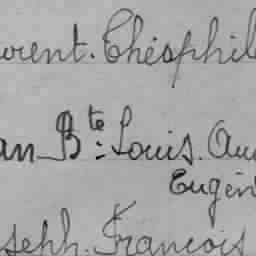 urent. Théophil
an B^te: Louis. Au
Eugèn
seph. François